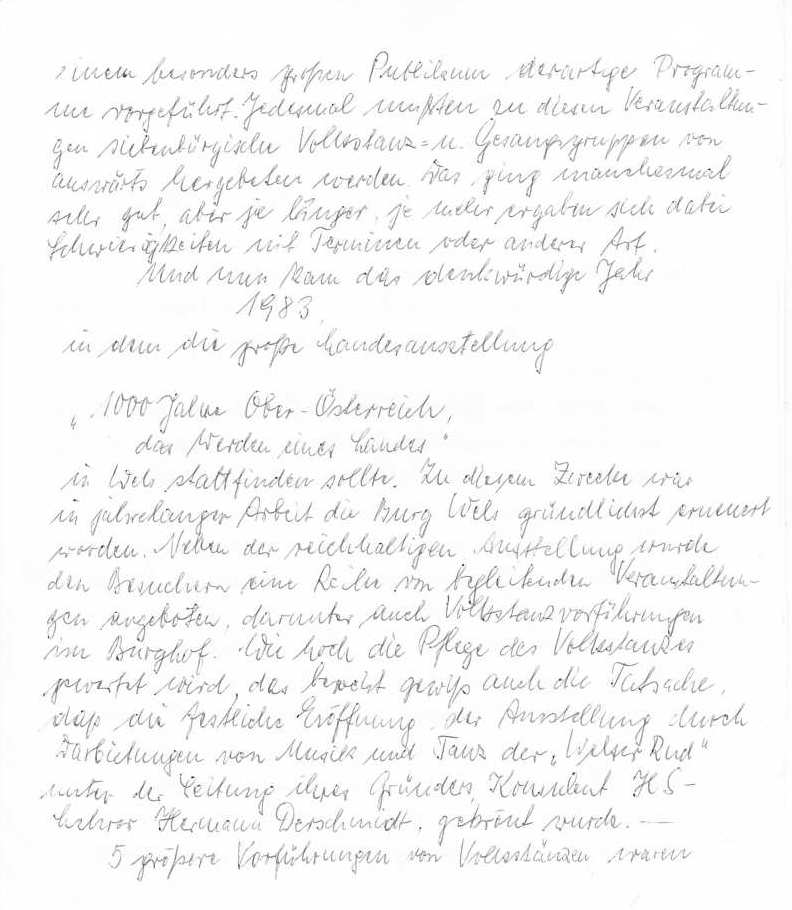 einem besonders großen Publikum derartige Program-
me vorgeführt. Jedesmal mußten zu diesen Veranstaltun-
gen siebenbürgische Volkstanz- u. Gesangsgruppen von
auswärts hergebeten werden. Das ging manchesmal
sehr gut, aber je länger, je mehr ergaben sich dabei
Schwierigkeiten mit Terminen oder anderer Art.
Und nun kam das denkwürdige Jahr
1983,
in dem die große Landesausstellung
„1000 Jahre Ober-Österreich,
das Werden eines Landes"
in Wels stattfinden sollte. Zu diesem Zwecke war
in jahrelanger Arbeit die Burg Wels gründlichst erneuert
worden. Neben der reichhaltigen Ausstellung wurde
den Besuchern eine Reihe von begleitenden Veranstaltun-
gen angeboten, darunter auch Volkstanzvorführungen
im Burghof. Wie hoch die Pflege des Volkstanzes
gewertet wird, das beweist gewiß auch die Tatsache,
daß die festliche Eröffnung der Ausstellung durch
Darbietungen von Musik und Tanz der „Welser Rud"
unter der Leitung ihres Gründers, Konsulent HS-
Lehrer Hermann Derschmidt, gekrönt wurde. —
5 größere Vorführungen von Volkstänzen waren